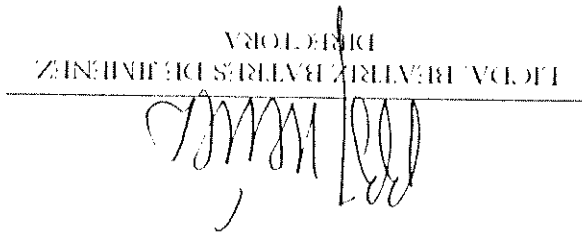 LICDA. BEATRIZ BATRES DE JIMENEZ
DIRECTORA